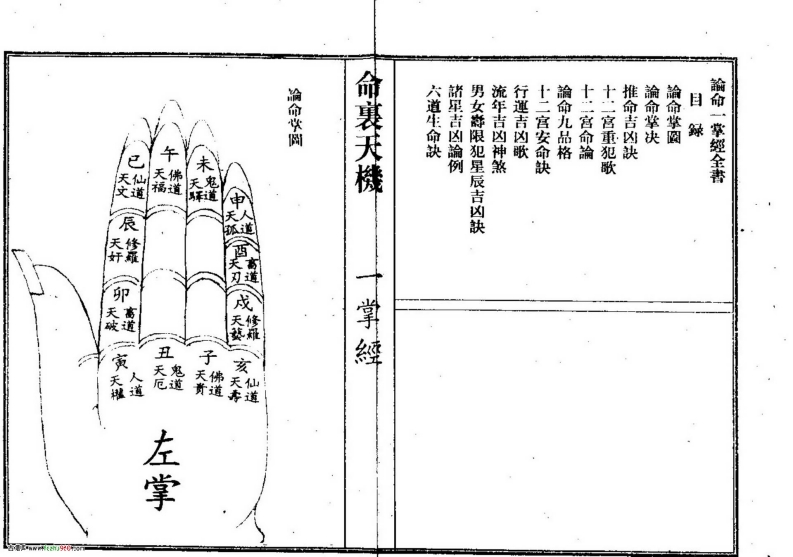 論命一掌經全書
目録
論命掌圖
論命掌决
推命吉凶訣
十二宮重犯歌
十二宮命論
論命九品格
十二宮安命訣
行運吉凶歌
流年吉凶神煞
男女壽限犯星辰吉凶訣
諸星吉凶論例
六道生命訣
命裏天機
一掌經
論命掌圖
巳
仙道
天文
午
佛道
天福
未
鬼道
天驛
申
人道
天孤
辰
修羅
天奸
酉
畜道
天刃
卯
畜道
天破
戌
修羅
天藝
寅
人道
天權
丑
鬼道
天厄
子
佛道
天貴
亥
仙道
天壽
左掌